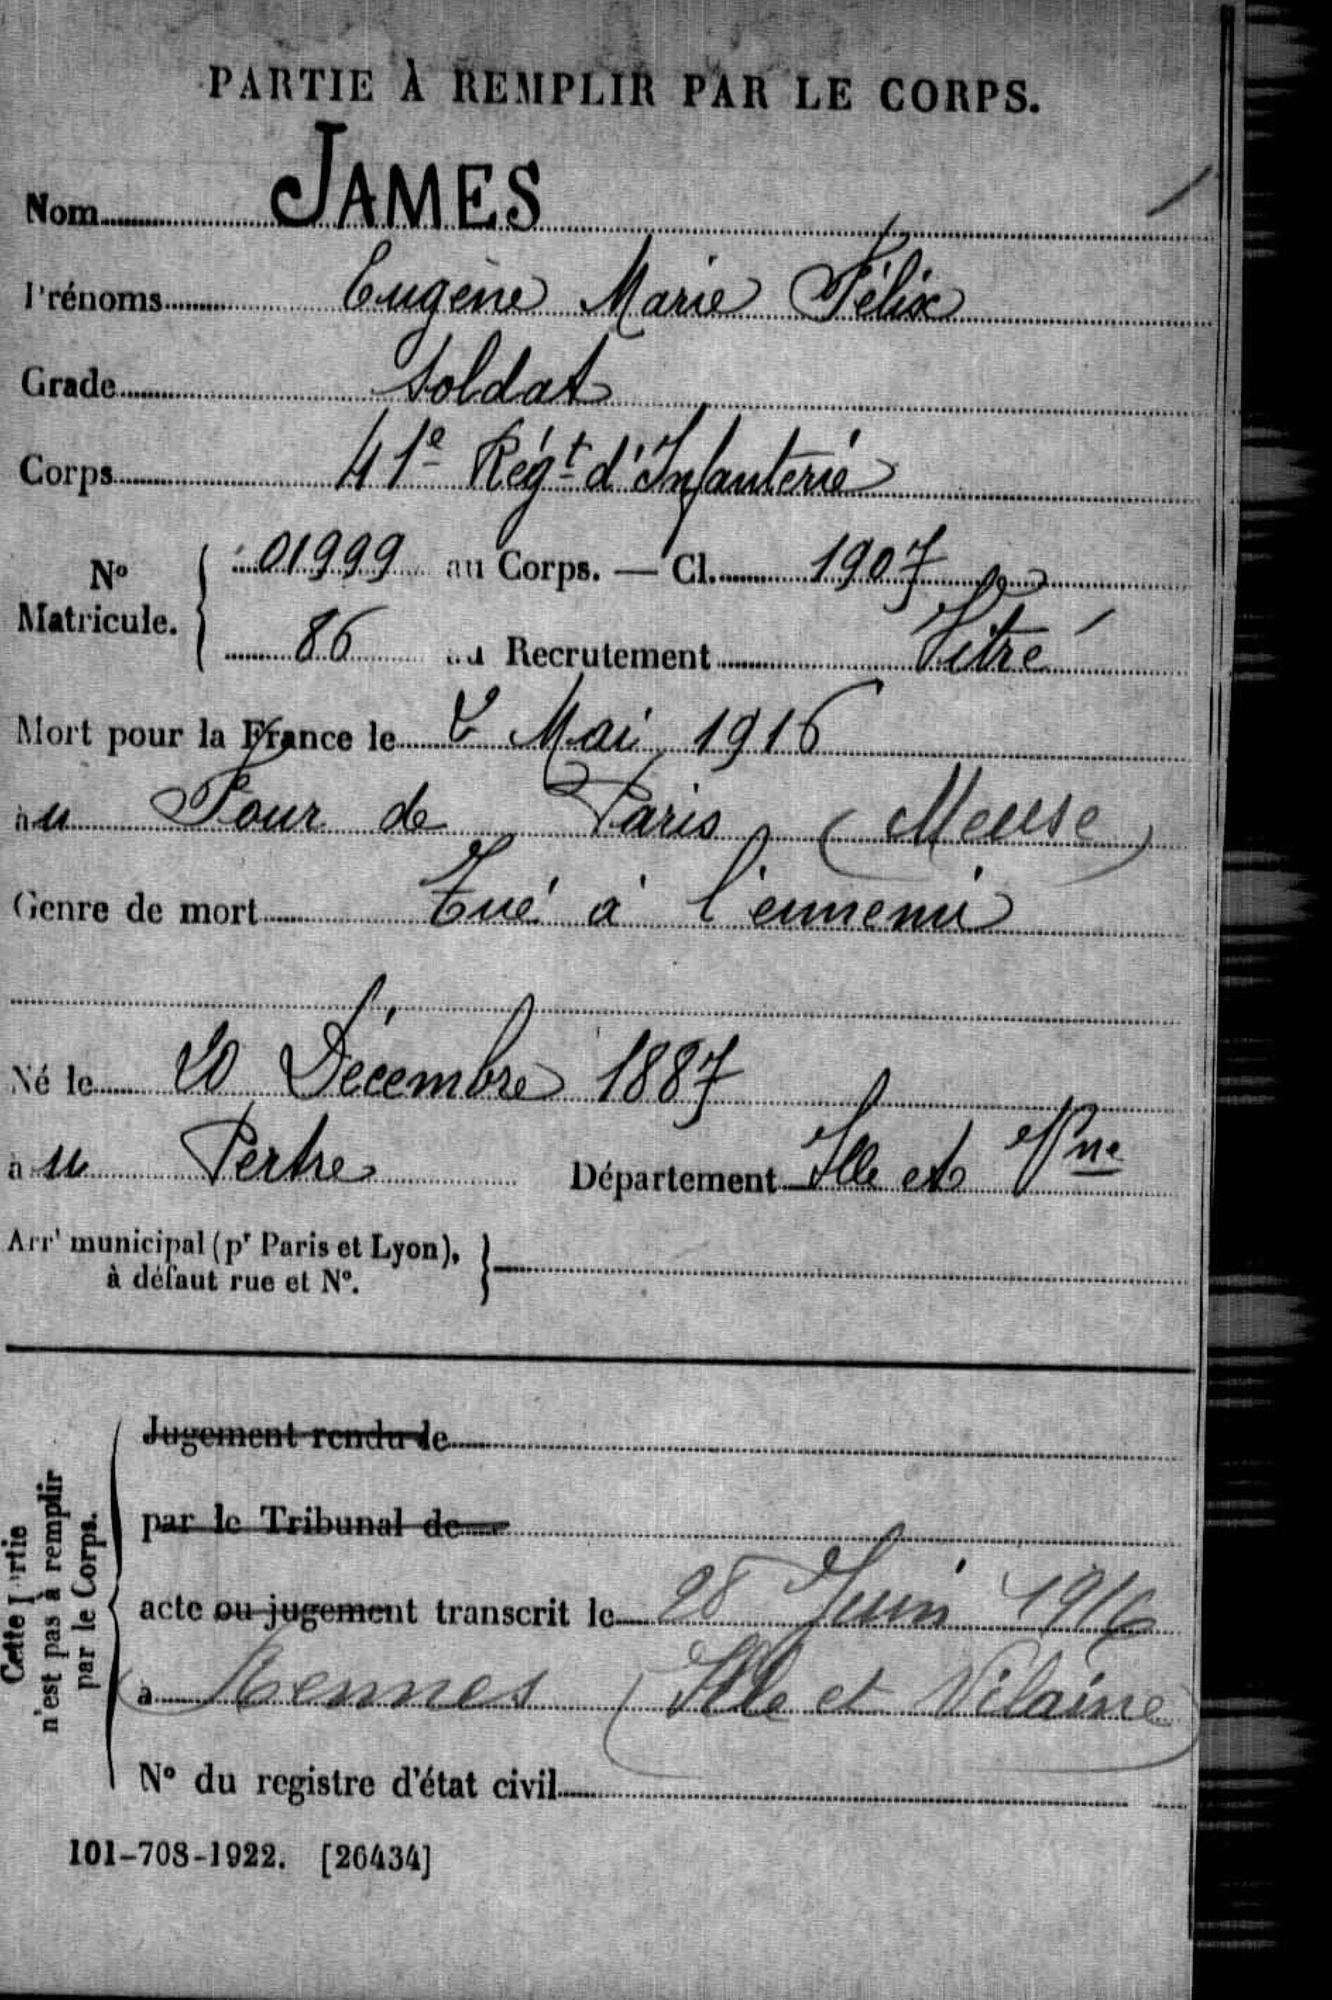 PARTIE À REMPLIR PAR LE CORPS.
Nom JAMES
Prénoms Eugène Marie Félix
Grade Soldat
Corps 41e Régt d'Infanterie
N° Matricule. 01999 au Corps. — Cl. 1907
86 au Recrutement Vitré
Mort pour la France le Mai 1916
au Four de Paris (Meuse)
Genre de mort Tué à l'ennemi
Né le 20 Décembre 1887
à Pertre Département Ille et Vne
Arrt municipal (pr Paris et Lyon), à défaut rue et N°.
Cette Partie n'est pas à remplir par le Corps.
Jugement rendu le
par le Tribunal de
acte ou jugement transcrit le 28 Juin 1916
à Rennes (Ille et Vilaine)
N° du registre d'état civil
101-708-1922. [26434]